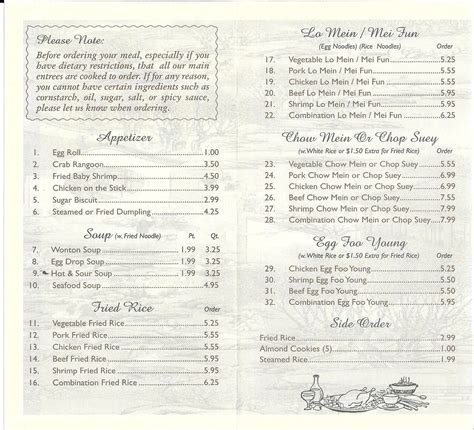 Please Note:
Before ordering your meal, especially if you
have dietary restrictions, that all our main
entrees are cooked to order. If for any reason,
you cannot have certain ingredients such as
cornstarch, oil, sugar, salt, or spicy sauce,
please let us know when ordering.
Appetizer
1. Egg Roll 1.00
2. Crab Rangoon 3.50
3. Fried Baby Shrimp 4.50
4. Chicken on the Stick 3.99
5. Sugar Biscuit 2.99
6. Steamed or Fried Dumpling 4.25
Soup (w. Fried Noodle) Pt. Qt.
7. Wonton Soup 1.99 3.25
8. Egg Drop Soup 1.99 3.25
9. Hot & Sour Soup 1.99 3.25
10. Seafood Soup 4.95
Fried Rice Order
11. Vegetable Fried Rice 5.25
12. Pork Fried Rice 5.55
13. Chicken Fried Rice 5.55
14. Beef Fried Rice 5.95
15. Shrimp Fried Rice 5.95
16. Combination Fried Rice 6.25
Lo Mein / Mei Fun
(Egg Noodles) (Rice Noodles) Order
17. Vegetable Lo Mein / Mei Fun 5.25
18. Pork Lo Mein / Mei Fun 5.55
19. Chicken Lo Mein / Mei Fun 5.55
20. Beef Lo Mein / Mei Fun 5.95
21. Shrimp Lo Mein / Mei Fun 5.95
22. Combination Lo Mein / Mei Fun 6.25
Chow Mein Or Chop Suey
(w. White Rice or $1.50 Extra for Fried Rice) Order
23. Vegetable Chow Mein or Chop Suey 5.55
24. Pork Chow Mein or Chop Suey 6.55
25. Chicken Chow Mein or Chop Suey 6.55
26. Beef Chow Mein or Chop Suey 6.95
27. Shrimp Chow Mein or Chop Suey 6.95
28. Combination Chow Mein or Chop Suey 7.99
Egg Foo Young
(w. White Rice or $1.50 Extra for Fried Rice) Order
29. Chicken Egg Foo Young 6.55
30. Shrimp Egg Foo Young 6.95
31. Beef Egg Foo Young 6.95
32. Combination Egg Foo Young 7.25
Side Order
Fried Rice 2.99
Almond Cookies (5) 1.00
Steamed Rice 1.99